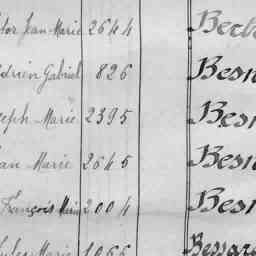 tor Jean Marie 2644 Bec
drien Gabriel 826 Besn
seph Marie 2395 Besn
ean Marie 2645 Besn
François Marie 2004 Besn
ules Marie 1066 Bessar